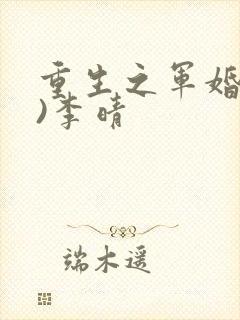 重生之军婚
)李晴
端木遥